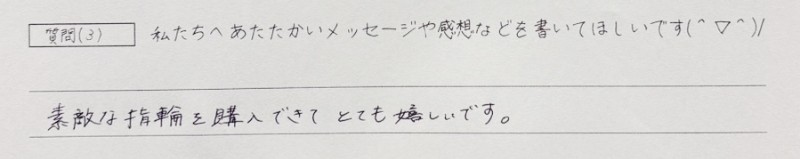 質問(3) 私たちへあたたかいメッセージや感想などを書いてほしいです(^▽^)/
素敵な指輪を購入できてとても嬉しいです。